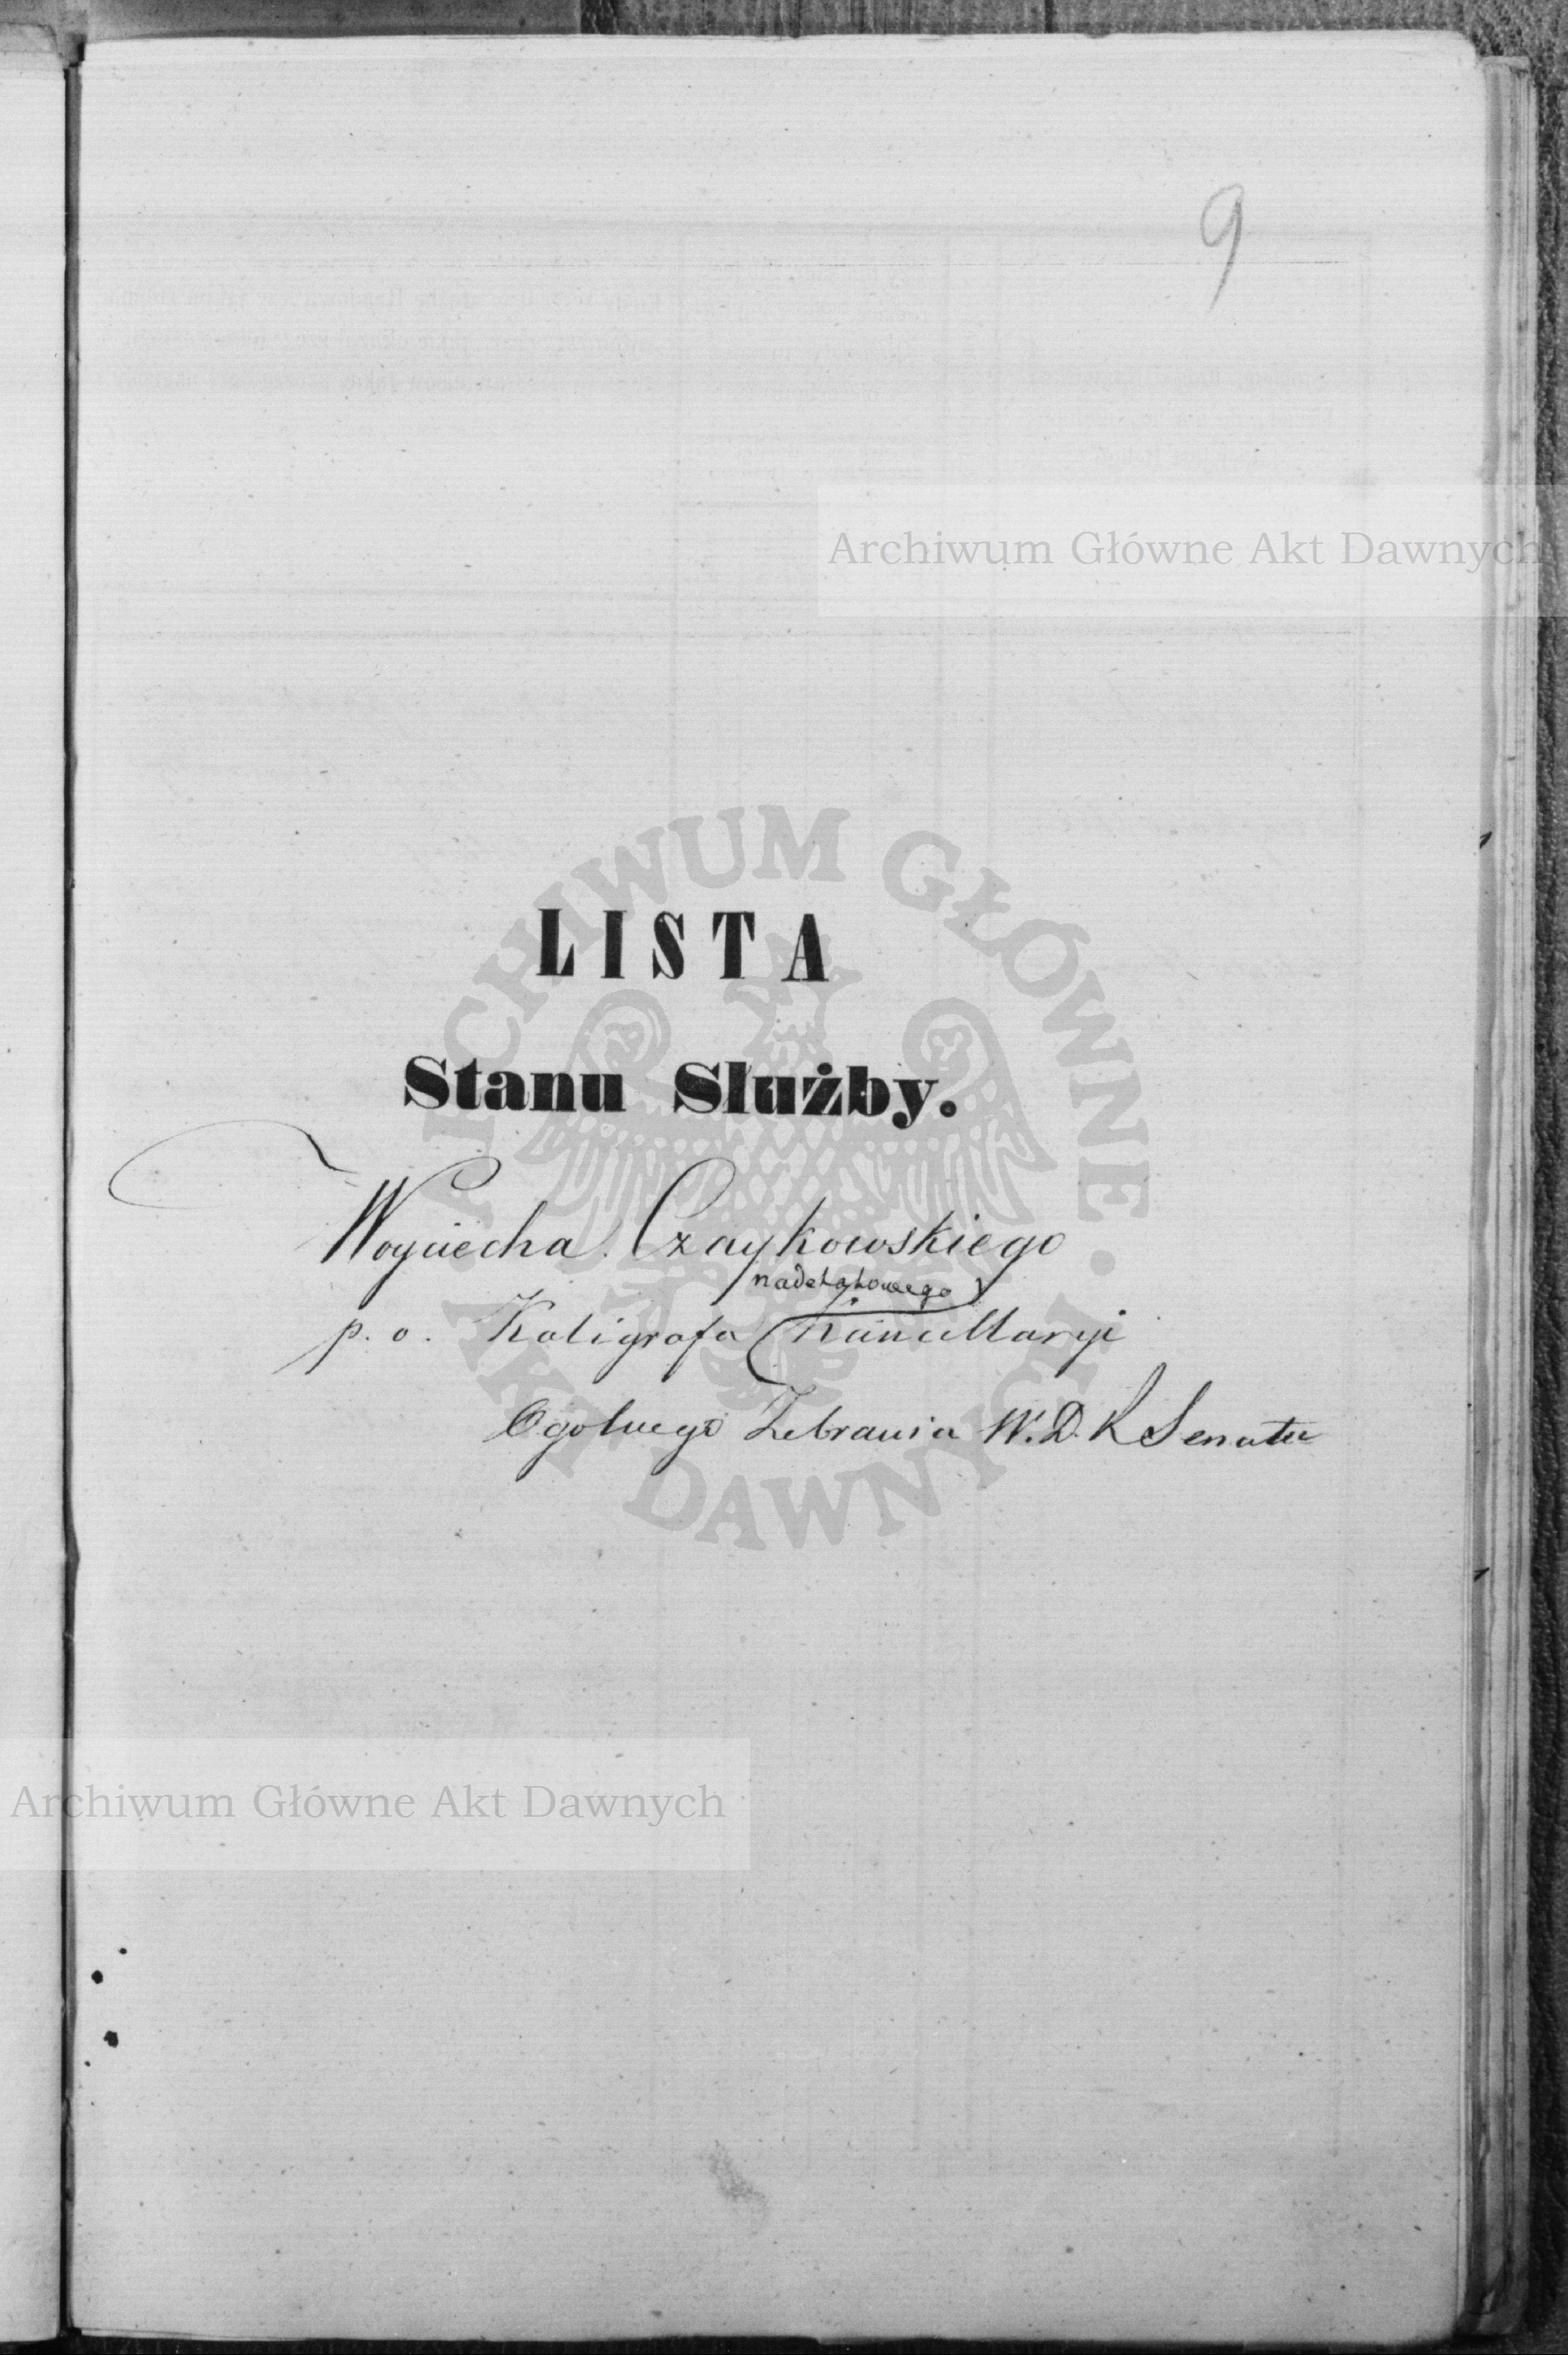 9
Archiwum Główne Akt Dawnych
LISTA
Stanu Służby.
Woyciecha Czaykowskiego
nadetatowego
p. o. Kaligrafa Kancellaryi
Ogolnego Zebrania W. D. R Senatu
ARCHIWUM GŁÓWNE AKT DAWNYCH
Archiwum Główne Akt Dawnych